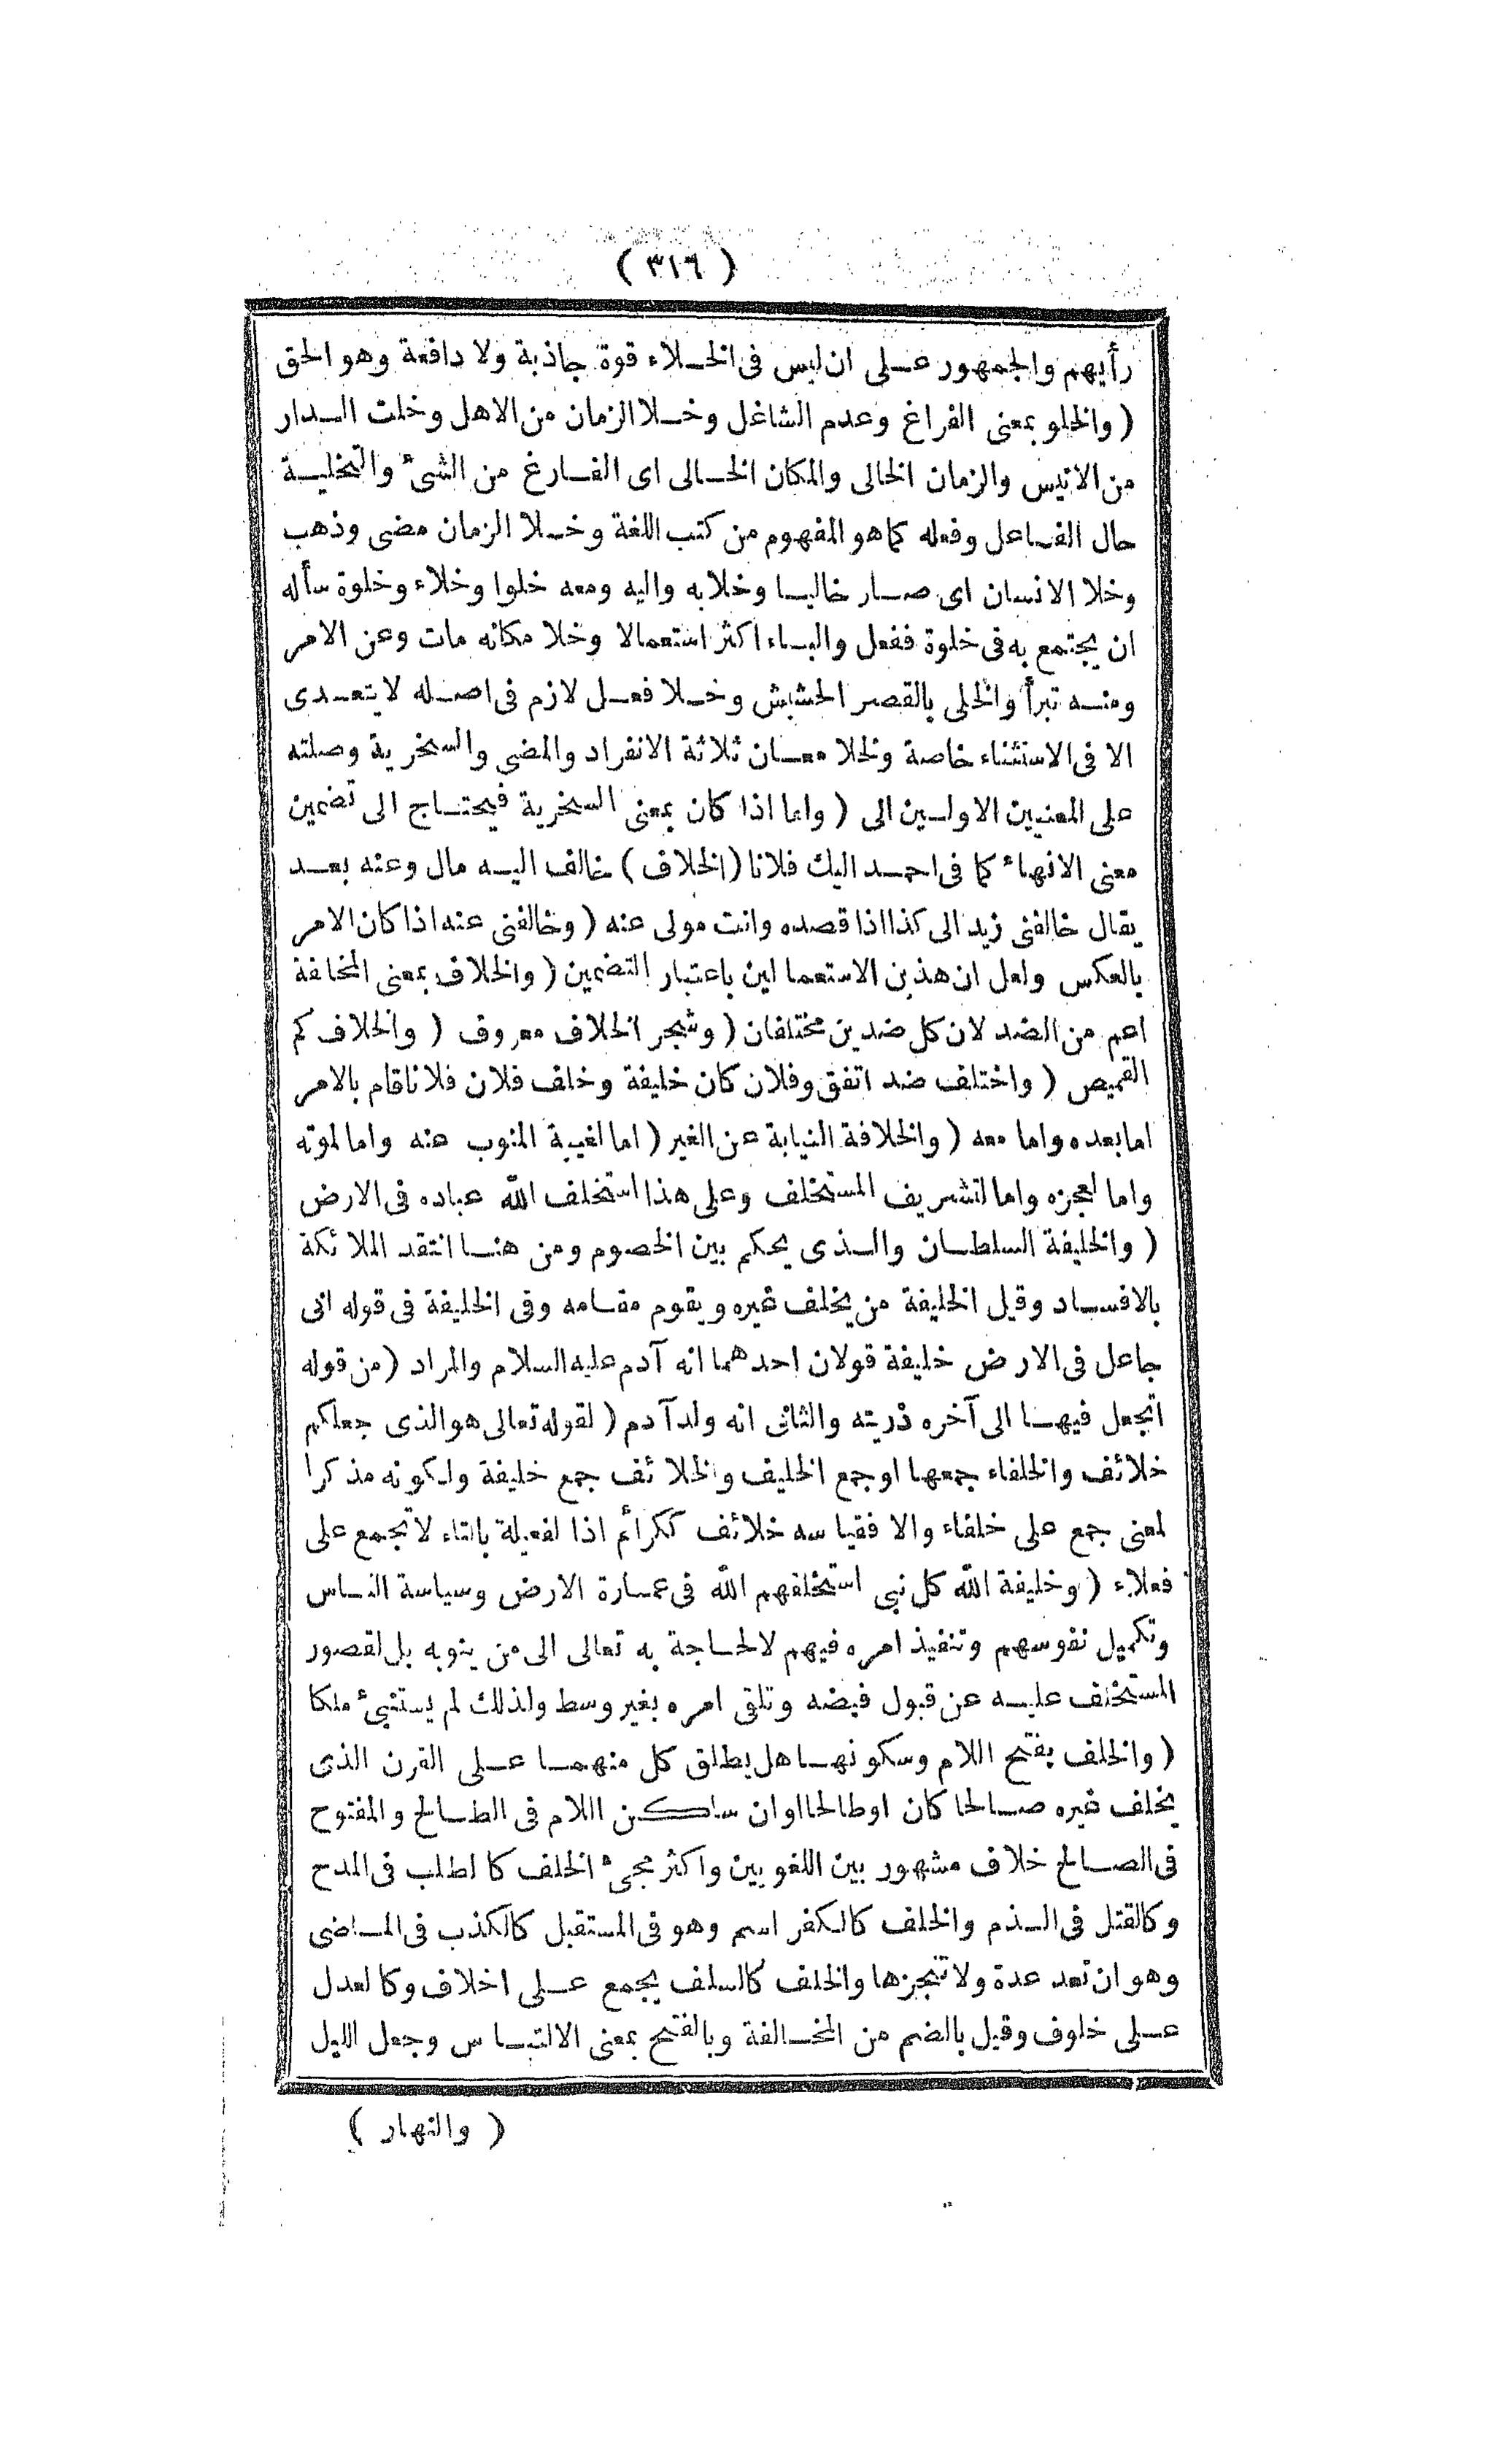 ( ٣١٦ )
رأيهم والجمهور عـلى ان ليس فى الخـلاء قوة جاذبة ولا دافعة وهو الحق
( والخلو بمعنى الفراغ وعدم الشاغل وخـلا الزمان من الاهل وخلت الـدار
من الانيس والزمان الخالى والمكان الخـالى اى الفـارغ من الشئ والتخليـة
حال الفـاعل وفعله كما هو المفهوم من كتب اللغة وخـلا الزمان مضى وذهب
وخلا الانسان اى صـار خاليـا وخلا به واليه ومعه خلوا وخلاء وخلوة سأله
ان يجتمع به فى خلوة ففعل والبـاء اكثر استعمالا وخلا مكانه مات وعن الامر
ومنـه تبرأ والخلى بالقصر الحشيش وخـلا فعـل لازم فى اصـله لا يتعـدى
الا فى الاستثناء خاصة ولخلا معـان ثلاثة الانفراد والمضى والسخرية وصلته
على المعنيين الاولـين الى ( واما اذا كان بمعنى السخرية فيحتـاج الى تضمين
معنى الانهاء كما فى احمـد اليك فلانا ( الخلاف ) خالف اليـه مال وعنه بعـد
يقال خالفنى زيد الى كذا اذا قصده وانت مولى عنه ( وخالفنى عنه اذا كان الامر
بالعكس ولعل ان هذين الاستعمالين باعتبار التضمين ( والخلاف بمعنى المخالفة
اعم من الضد لان كل ضدين مختلفان ( وشجر الخلاف معروف ( والخلاف كم
القميص ( واختلف ضد اتفق وفلان كان خليفة وخلف فلان فلانا قام بالامر
اما بعده واما معه ( والخلافة النيابة عن الغير ( اما لغيبة المنوب عنه واما لموته
واما لعجزه واما لتشريف المستخلف وعلى هذا استخلف الله عباده فى الارض
( والخليفة السلطـان والـذى يحكم بين الخصوم ومن هنـا انتقد الملائكة
بالافسـاد وقيل الخليفة من يخلف غيره ويقوم مقـامه وفى الخليفة فى قوله انى
جاعل فى الارض خليفة قولان احدهما انه آدم عليه السلام والمراد ( من قوله
اتجعل فيهـا الى آخره ذريته والثانى انه ولد آدم ( لقوله تعالى هو الذى جعلكم
خلائف والخلفاء جمعهـا او جمع الخليف والخلائف جمع خليفة ولكونه مذكرا
لمعنى جمع على خلفاء والا فقياسه خلائف ككرائم اذا لفعيلة بالتاء لا تجمع على
فعلاء ( وخليفة الله كل نبى استخلفهم الله فى عمـارة الارض وسياسة النـاس
وتكميل نفوسهم وتنفيذ امره فيهم لا لحـاجة به تعالى الى من ينوبه بل لقصور
المستخلف عليـه عن قبول فيضه وتلقى امره بغير وسط ولذلك لم يستنبئ ملكا
( والخلف بفتح اللام وسكونهـا هل يطلق كل منهمـا عـلى القرن الذى
يخلف غيره صـالحا كان او طالحا او ان ساكـن اللام فى الطـالح والمفتوح
فى الصـالح خلاف مشهور بين اللغويين واكثر مجئ الخلف كالطلب فى المدح
وكالقتل فى الـذم والخلف كالكفر اسم وهو فى المستقبل كالكذب فى المـاضى
وهو ان تعد عدة ولا تنجزها والخلف كالسلف يجمع عـلى اخلاف وكالعدل
عـلى خلوف وقيل بالضم من المخـالفة وبالفتح بمعنى الالتبـاس وجعل الليل
( والنهار )